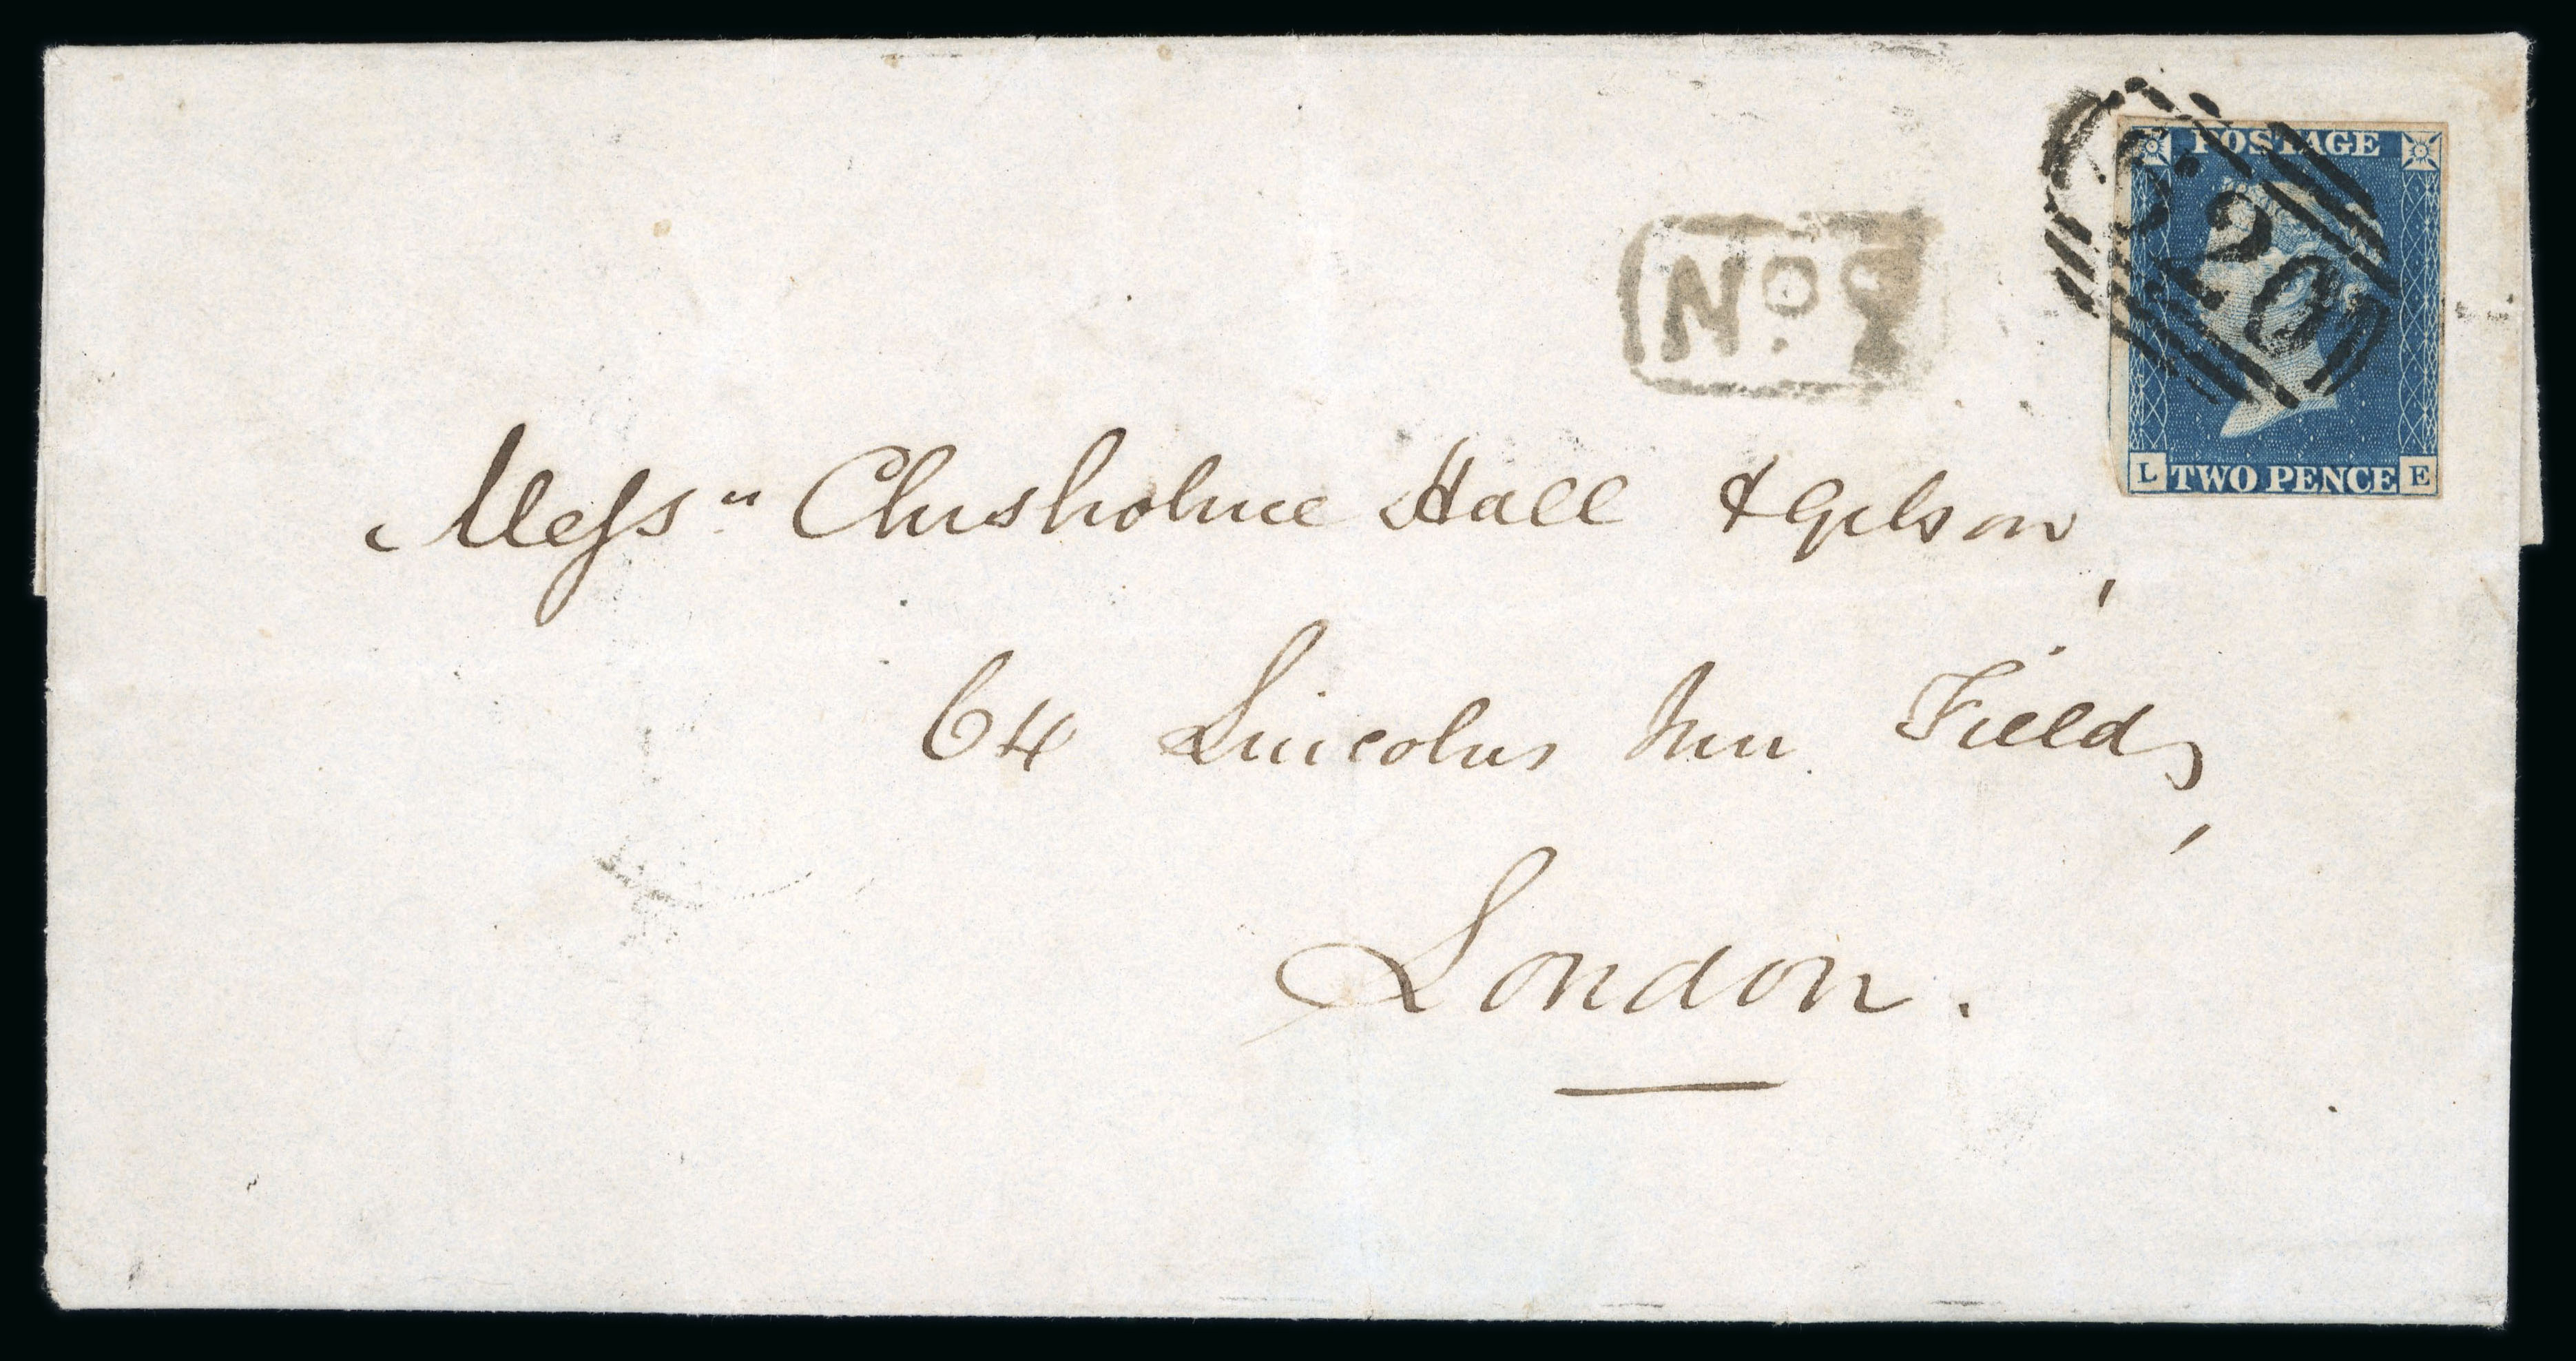 POSTAGE
No.
L TWO PENCE E
Mess" Chisholme Hall & Gibson,
64 Lincolns Inn Fields,
London.